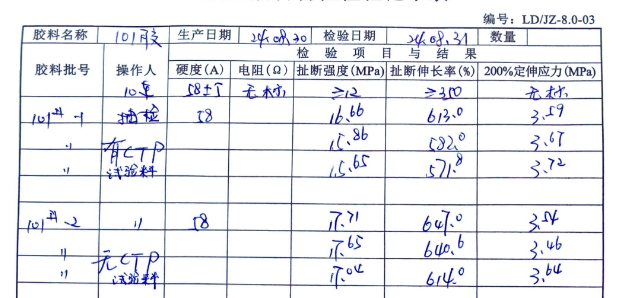 编号：LD/JZ-8.0-03
胶料名称 101胶 生产日期 24.08.30 检验日期 24.08.31 数量
胶料批号 操作人 检验项目与结果
硬度(A) 电阻(Ω) 扯断强度(MPa) 扯断伸长率(%) 200%定伸应力(MPa)
58±5 无标 ≥12 ≥350 无标
101 -1 抽检 58 16.66 613.0 3.59
" 有CTP 15.86 582.0 3.67
" 试验料 15.65 571.8 3.72
101 -2 " 58 17.71 647.0 3.54
" 无CTP 17.65 640.6 3.46
" 试验料 17.04 614.0 3.64